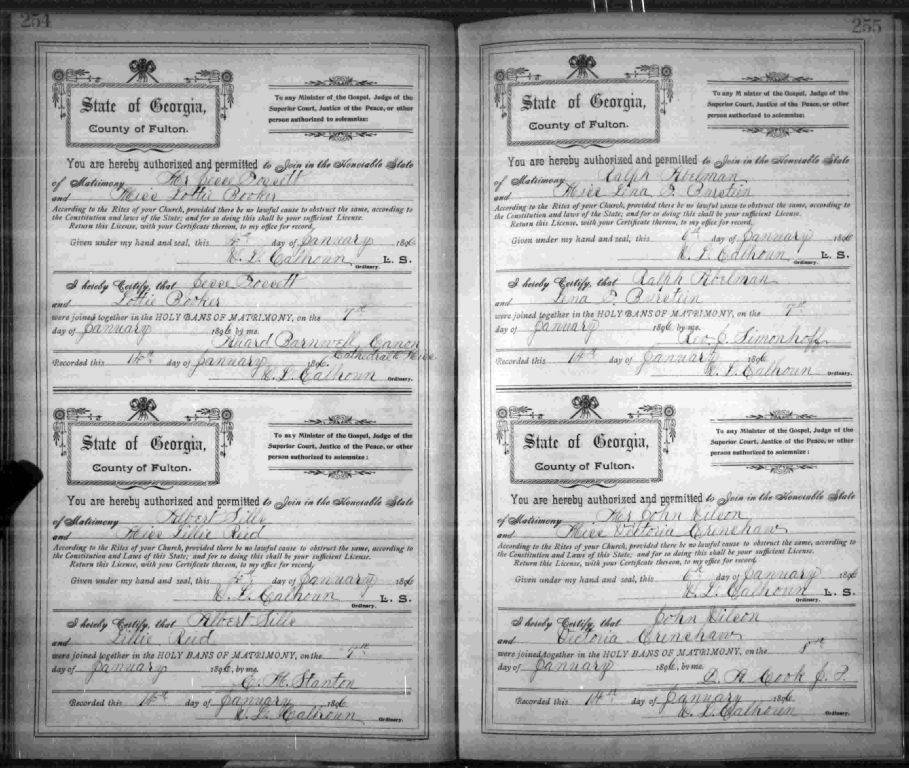 254
State of Georgia,
County of Fulton.
To any Minister of the Gospel, Judge of the
Superior Court, Justice of the Peace, or other
person authorized to solemnize:
You are hereby authorized and permitted to Join in the Honorable State
of Matrimony Mr Jesse
and Miss Lottie Booker
According to the Rites of your Church, provided there be no lawful cause to obstruct the same, according to the
Constitution and laws of the State; and for so doing this shall be your sufficient License.
Return this License, with your Certificate thereon, to my office for record.
Given under my hand and seal, this day of January 1896
W. L. Calhoun L. S.
Ordinary.
I hereby Certify, that Jesse
and Lottie Booker
were joined together in the HOLY BANS OF MATRIMONY, on the 7th
day of January 1896 by me.
Barnwell Canon
Cathedral
Recorded this 14th day of January 1896
W. L. Calhoun Ordinary.
State of Georgia,
County of Fulton.
To any Minister of the Gospel, Judge of the
Superior Court, Justice of the Peace, or other
person authorized to solemnize:
You are hereby authorized and permitted to Join in the Honorable State
of Matrimony Albert Sills
and Miss Lillie Reid
According to the Rites of your Church, provided there be no lawful cause to obstruct the same, according to the
Constitution and Laws of this State; and for so doing this shall be your sufficient License.
Return this License, with your Certificate thereon, to my office for record.
Given under my hand and seal, this day of January 1896
W. L. Calhoun L. S.
Ordinary.
I hereby Certify, that Albert Sills
and Lillie Reid
were joined together in the HOLY BANS OF MATRIMONY, on the 7th
day of January 1896, by me.
C. M. Stanton
Recorded this 14th day of January 1896
W. L. Calhoun Ordinary.
255
State of Georgia,
County of Fulton.
To any Minister of the Gospel, Judge of the
Superior Court, Justice of the Peace, or other
person authorized to solemnize:
You are hereby authorized and permitted to Join in the Honorable State
of Matrimony Ralph Abelman
and Miss Lena F. Burstein
According to the Rites of your Church, provided there be no lawful cause to obstruct the same, according to
the Constitution and laws of the State; and for so doing this shall be your sufficient License.
Return this License, with your Certificate thereon, to my office for record.
Given under my hand and seal, this 6th day of January 1896
W. L. Calhoun L. S.
Ordinary.
I hereby Certify, that Ralph Abelman
and Lena F. Burstein
were joined together in the HOLY BANS OF MATRIMONY, on the 7th
day of January 1896 by me.
Rev. J. Simonhoff
Recorded this 14th day of January 1896
W. L. Calhoun Ordinary.
State of Georgia,
County of Fulton.
To any Minister of the Gospel, Judge of the
Superior Court, Justice of the Peace, or other
person authorized to solemnize:
You are hereby authorized and permitted to Join in the Honorable State
of Matrimony Mr John Wilson
and Miss Victoria Crenshaw
According to the Rites of your Church, provided there be no lawful cause to obstruct the same, according to the
Constitution and Laws of this State; and for so doing this shall be your sufficient License.
Return this License, with your Certificate thereon, to my office for record.
Given under my hand and seal, this 6th day of January 1896
W. L. Calhoun L. S.
Ordinary.
I hereby Certify, that John Wilson
and Victoria Crenshaw
were joined together in the HOLY BANS OF MATRIMONY, on the 8th
day of January 1896, by me.
D. A. Cook J. P.
Recorded this 14th day of January 1896
W. L. Calhoun Ordinary.